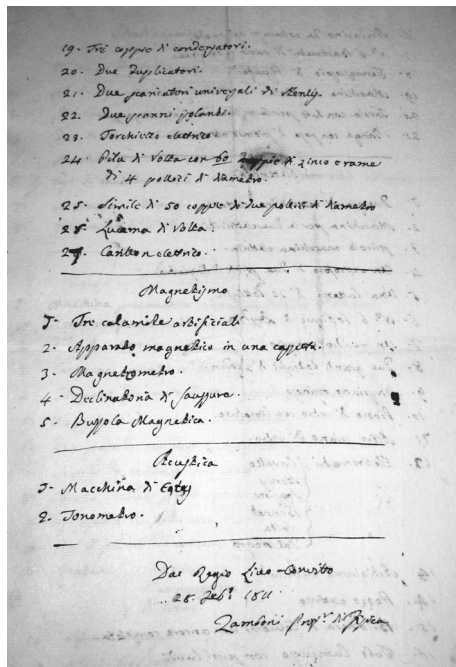 19. Tre coppie di condensatori.
20. Due duplicatori.
21. Due scaricatori universali di Henly.
22. Due scanni isolanti.
23. Torchietto elettrico
24. Pila di Volta con 60 coppie di zinco e rame
di 4 pollici di diametro.
25. Simile di 50 coppie di due pollici di diametro
28. Lucerna di Volta
29. Carillon elettrico.
Magnetismo
1. Tre calamite artifiziali
2. Apparato magnetico in una cassetta.
3. Magnetometro.
4. Declinatoria di Saussure.
5. Bussola Magnetica.
Acustica
1. Macchina di
2. Tonometro.
Dal Regio Liceo-Convitto
28. Feb. 1811
Zamboni Prof. di Fisica